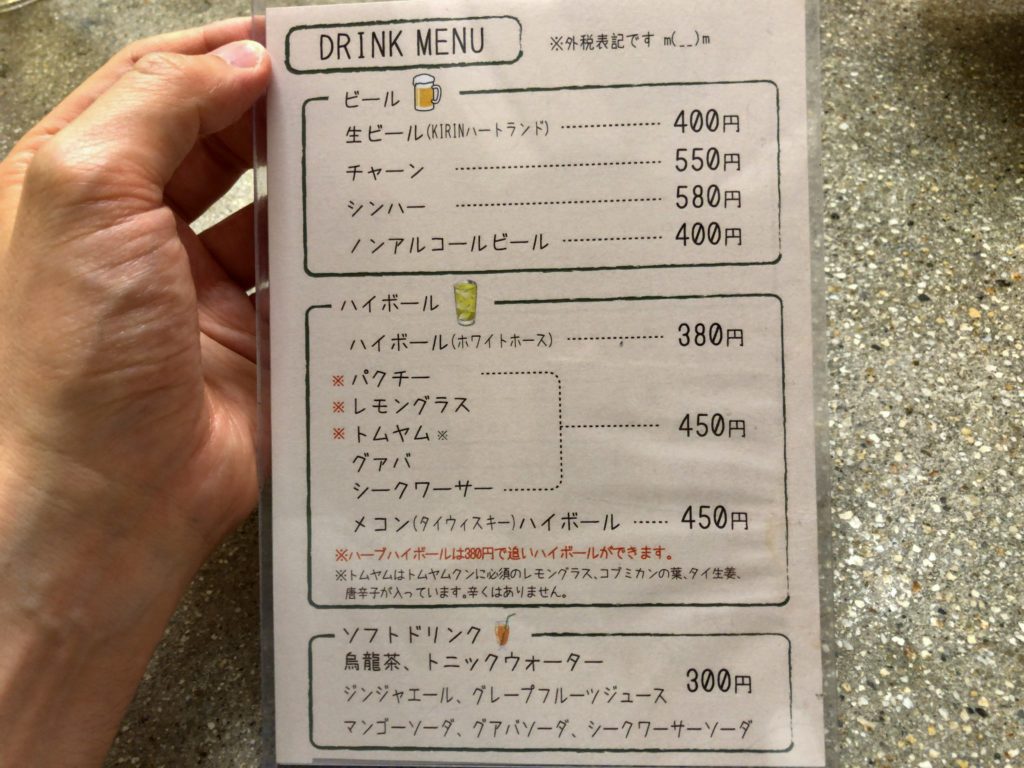 DRINK MENU ※外税表記です m(__)m
ビール
生ビール(KIRINハートランド) 400円
チャーン 550円
シンハー 580円
ノンアルコールビール 400円
ハイボール
ハイボール(ホワイトホース) 380円
※ パクチー
※ レモングラス
※ トムヤム※ 450円
グァバ
シークワーサー
メコン(タイウィスキー)ハイボール 450円
※ハーブハイボールは380円で追いハイボールができます。
※トムヤムはトムヤムクンに必須のレモングラス、コブミカンの葉、タイ生姜、
唐辛子が入っています。辛くはありません。
ソフトドリンク
烏龍茶、トニックウォーター
ジンジャエール、グレープフルーツジュース 300円
マンゴーソーダ、グアバソーダ、シークワーサーソーダ